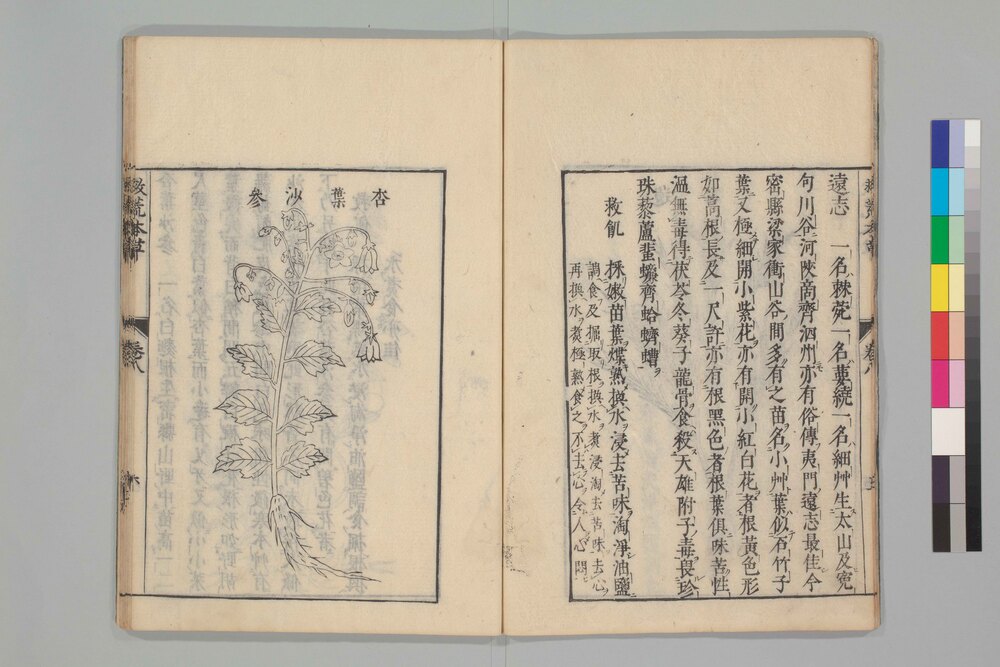 遠志 一名棘菀一名葽繞一名細艸生太山及寃
句川谷河陝啇齊泗州亦有俗傳夷門遠志最佳今
密縣梁家衝山谷間多有之苗名小艸葉似石竹子
葉又極細開小紫花亦有開小紅白花者根黃色形
如蒿根長及一尺許亦有根黑色者根葉俱味苦性
溫無毒得茯苓冬葵子龍骨良殺天雄附子毒畏珍
珠藜蘆蜚蠊齊蛤蠐螬
救飢 採嫩苗葉煠熟換水浸去苦味淘淨油鹽
調食及掘取根換水煮浸淘去苦味去心
再換水煮極熟食之不去心令人心悶
救荒本草
卷八
杏葉沙參
救荒本草
卷八